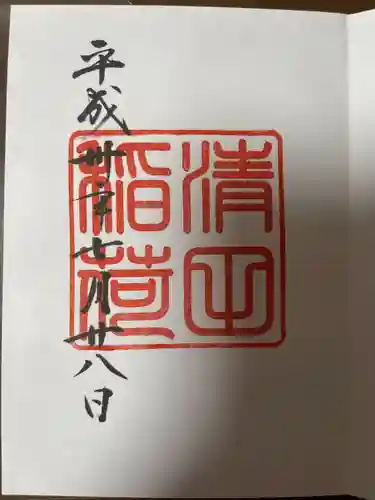 清平
稲荷
平成卅年七月廿八日